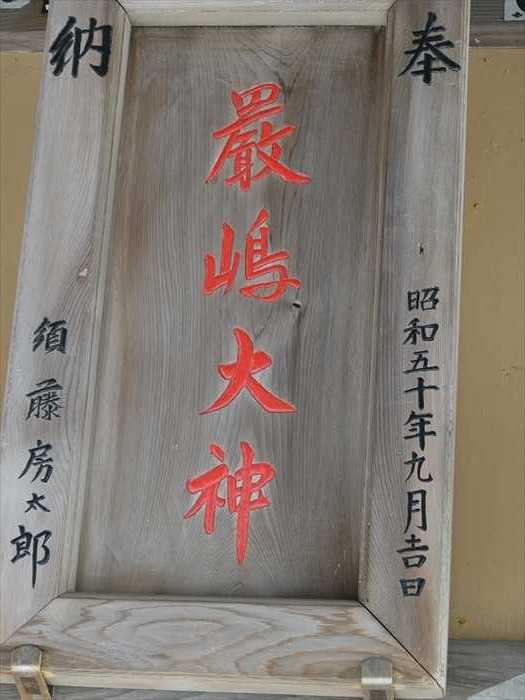 奉
昭和五十年九月吉日
嚴嶋大神
納
須藤房太郎